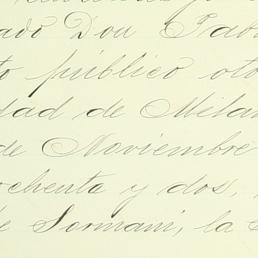 ado Don Pab
to público oto
dad de Milan
de Noviembre
ochenta y dos,
de Sormani, la